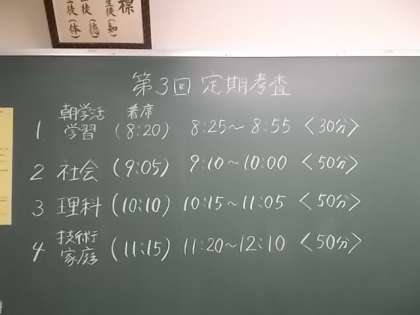 標
生徒（知）
生徒（徳）
生徒（体）
第3回 定期考査
着席
1 朝学活 学習 (8:20) 8:25～8:55 〈30分〉
2 社会 (9:05) 9:10～10:00 〈50分〉
3 理科 (10:10) 10:15～11:05 〈50分〉
4 技術 家庭 (11:15) 11:20～12:10 〈50分〉